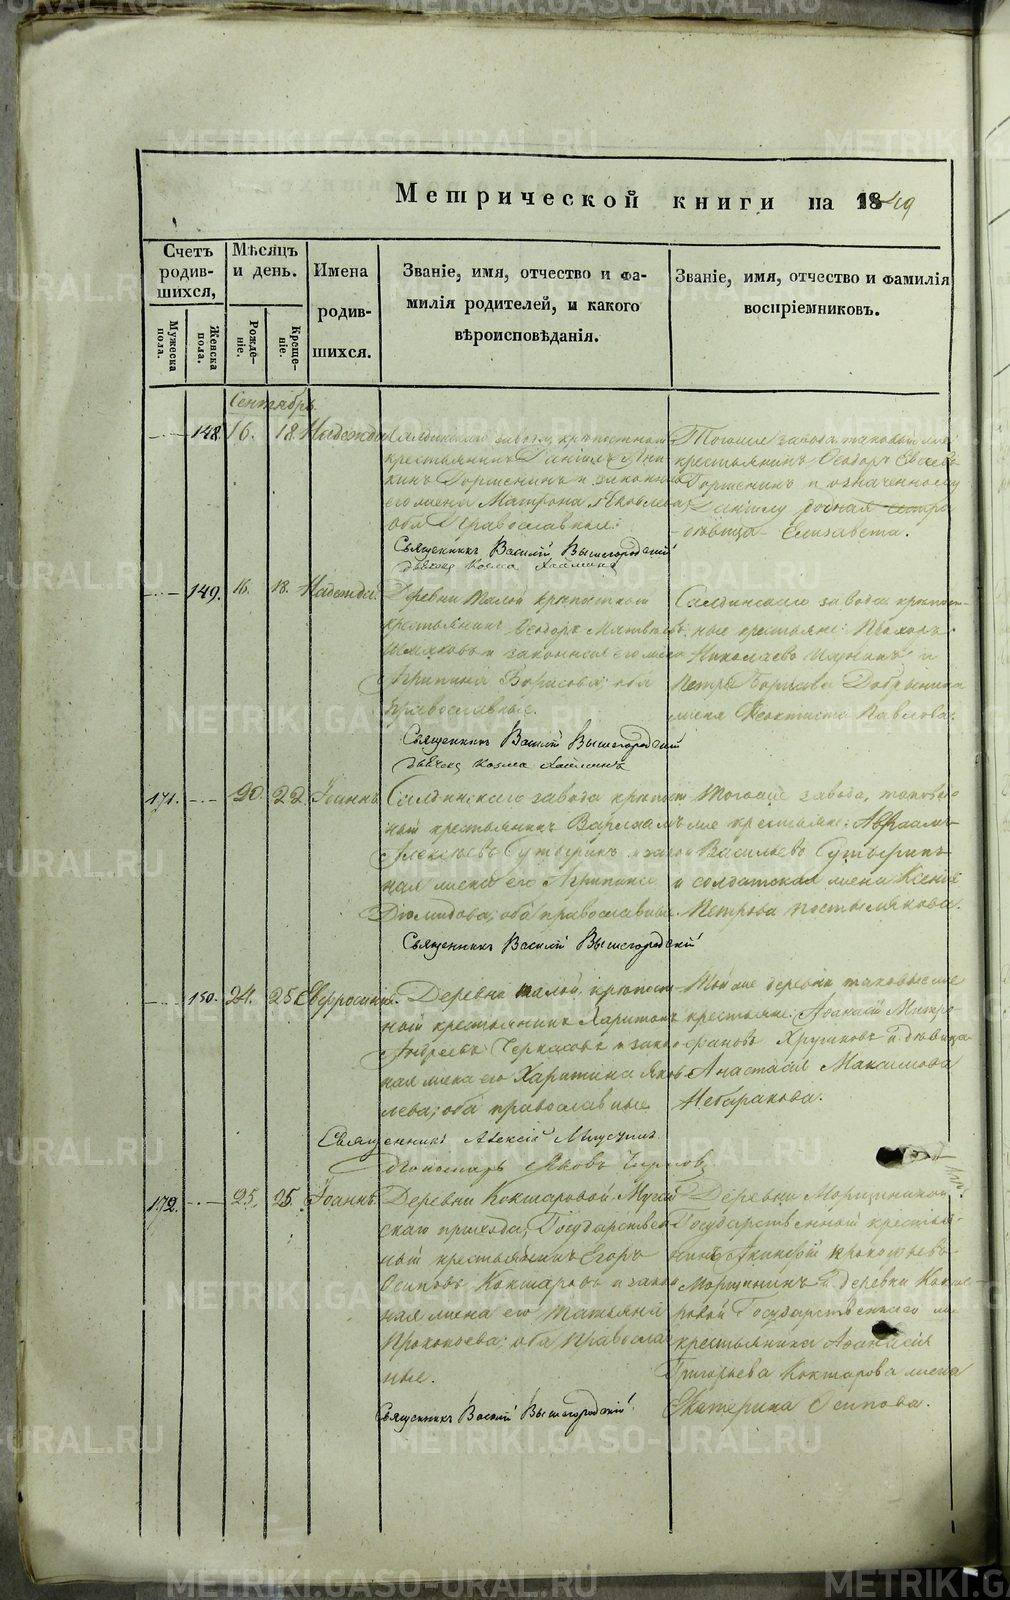 Метрической книги на 1849
Счетъ родив-шихся,
Мѣсяцъ и день.
Имена родив-шихся.
Званіе, имя, отчество и фа-
милія родителей, и какого
вѣроисповѣданія.
Званіе, имя, отчество и фамилія
воспріемниковъ.
Мужеска пола.
Женска пола.
Рожде-ніе.
Креще-ніе.
Сентябрь
148. 16. 18. Надежда
Салдинскаго завода крѣпостной
крестьянинъ Даніилъ
Горшенинъ и законная
его жена Матрона Яковлева
оба Православные.
Священникъ Василій Вышегородскій
дьячекъ Козма
Тогоже завода таковый же
крестьянинъ Ѳеодоръ
Горшенинъ и означенному
Даніилу родная сестра
дѣвица Елисавета.
149. 16. 18. Надежда.
Деревни Малой крѣпостной
крестьянинъ Ѳеодоръ Матвѣевъ
и законная его жена
Агрипина Борисова; оба
православные.
Священникъ Василій Вышегородскій
дьячекъ Козма
Салдинскаго завода крѣпост-
ные крестьяне: Прохоръ
Николаевъ и
Петра Добрынина
жена Ѳеоктиста Павлова.
171. 20. 22. Іоаннъ.
Салдинскаго завода крѣпост-
ный крестьянинъ Варлаамъ
Алексѣевъ и закон-
ная жена его Агрипина
Діомидова, оба православные
Священникъ Василій Вышегородскій
Тогоже завода, таковые
же крестьяне: Авраамъ
Васильевъ
и солдатская жена Ксенія
Петрова Постылякова.
150. 24. 25. Евфросинія.
Деревни Малой, крѣпост-
ный крестьянинъ Харитонъ
Андреевъ Черкасовъ и закон-
ная жена его Харитина Яков-
лева; оба православные
Священникъ Алексій
Пономарь Яковъ
Той же деревни таковые же
крестьяне: Аѳанасій Митро-
фановъ и дѣвица
Анастасія Максимова
172. 25. 25. Іоаннъ.
Деревни Кокшаровой
скаго прихода, Государствен-
ный крестьянинъ Егоръ
Осиповъ Кокшаровъ и закон-
ная жена его Татьяна
Прокопьева; оба православ-
ные.
Священникъ Василій Вышегородскій
Деревни Морщининой
Государственный крестья-
нинъ Акинфій Прокопьевъ
Морщининъ и деревни Кокша-
ровой Государственнаго
крестьянина Аѳанасія
Григорьева Кокшарова жена
Екатерина Осипова.
METRIKI.GASO-URAL.RU